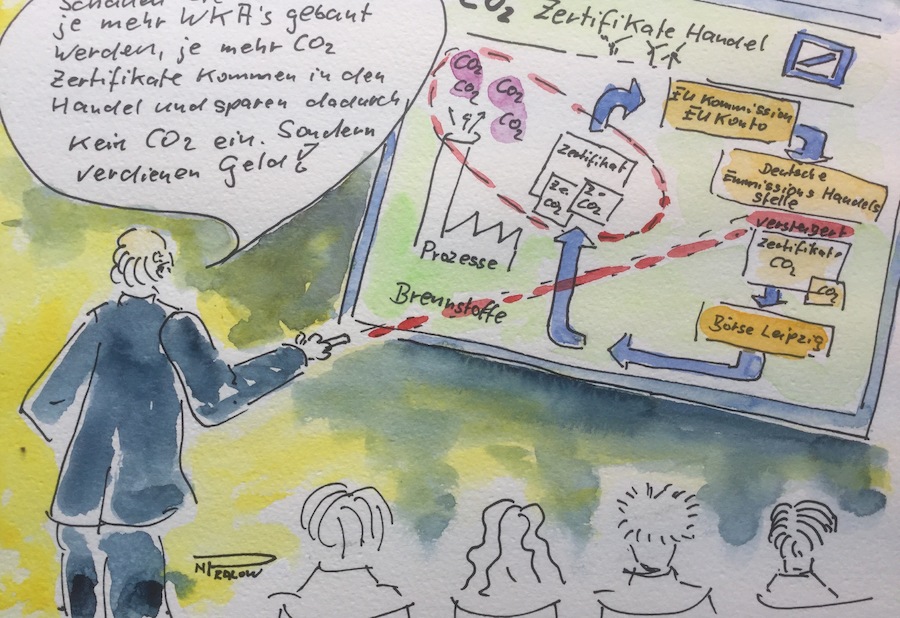 Schauen
je mehr WKA's gebaut
werden, je mehr CO2
Zertifikate kommen in den
Handel und sparen dadurch,
kein CO2 ein. Sondern
verdienen Geld!
CO2 Zertifikate Handel
CO2
CO2
CO2
CO2
Zertifikat
Ze.
CO2
Ze.
CO2
Prozesse
Brennstoffe
EU Kommission
EU Konto
Deutsche
Emmissions Handels
stelle
versteigert
Zertifikate
CO2
CO2
Börse Leipzig